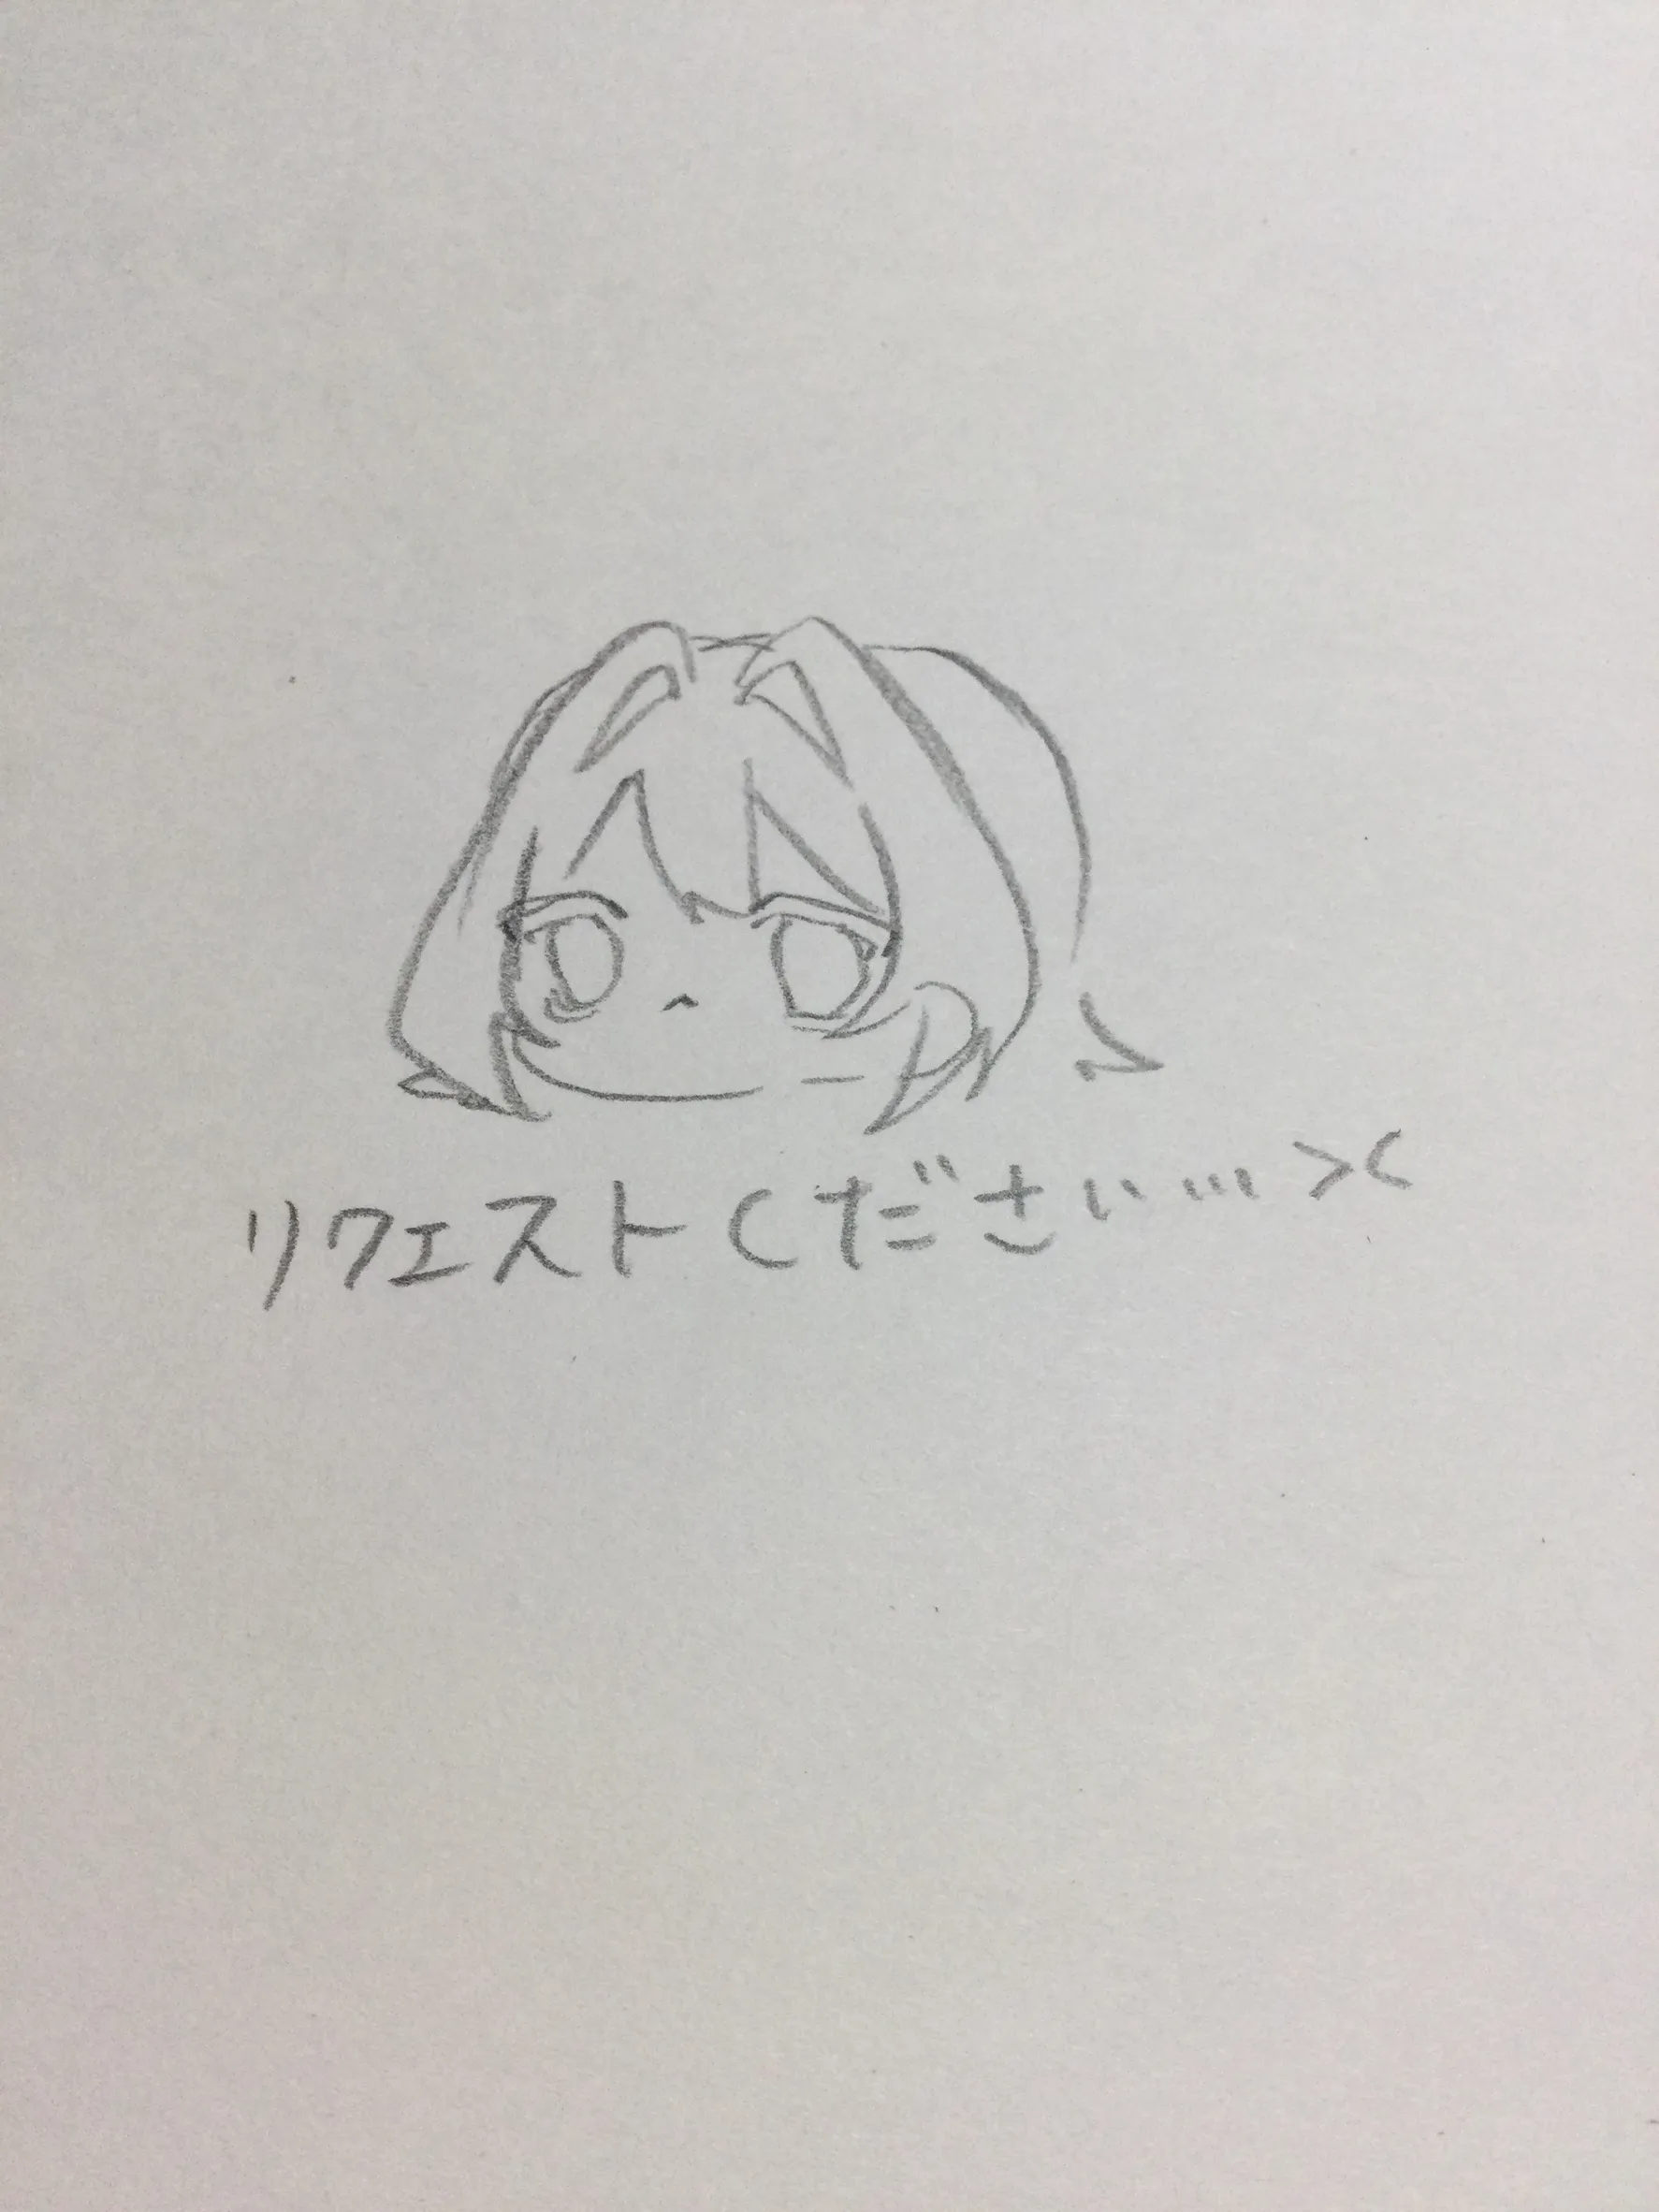 リクエストください…><